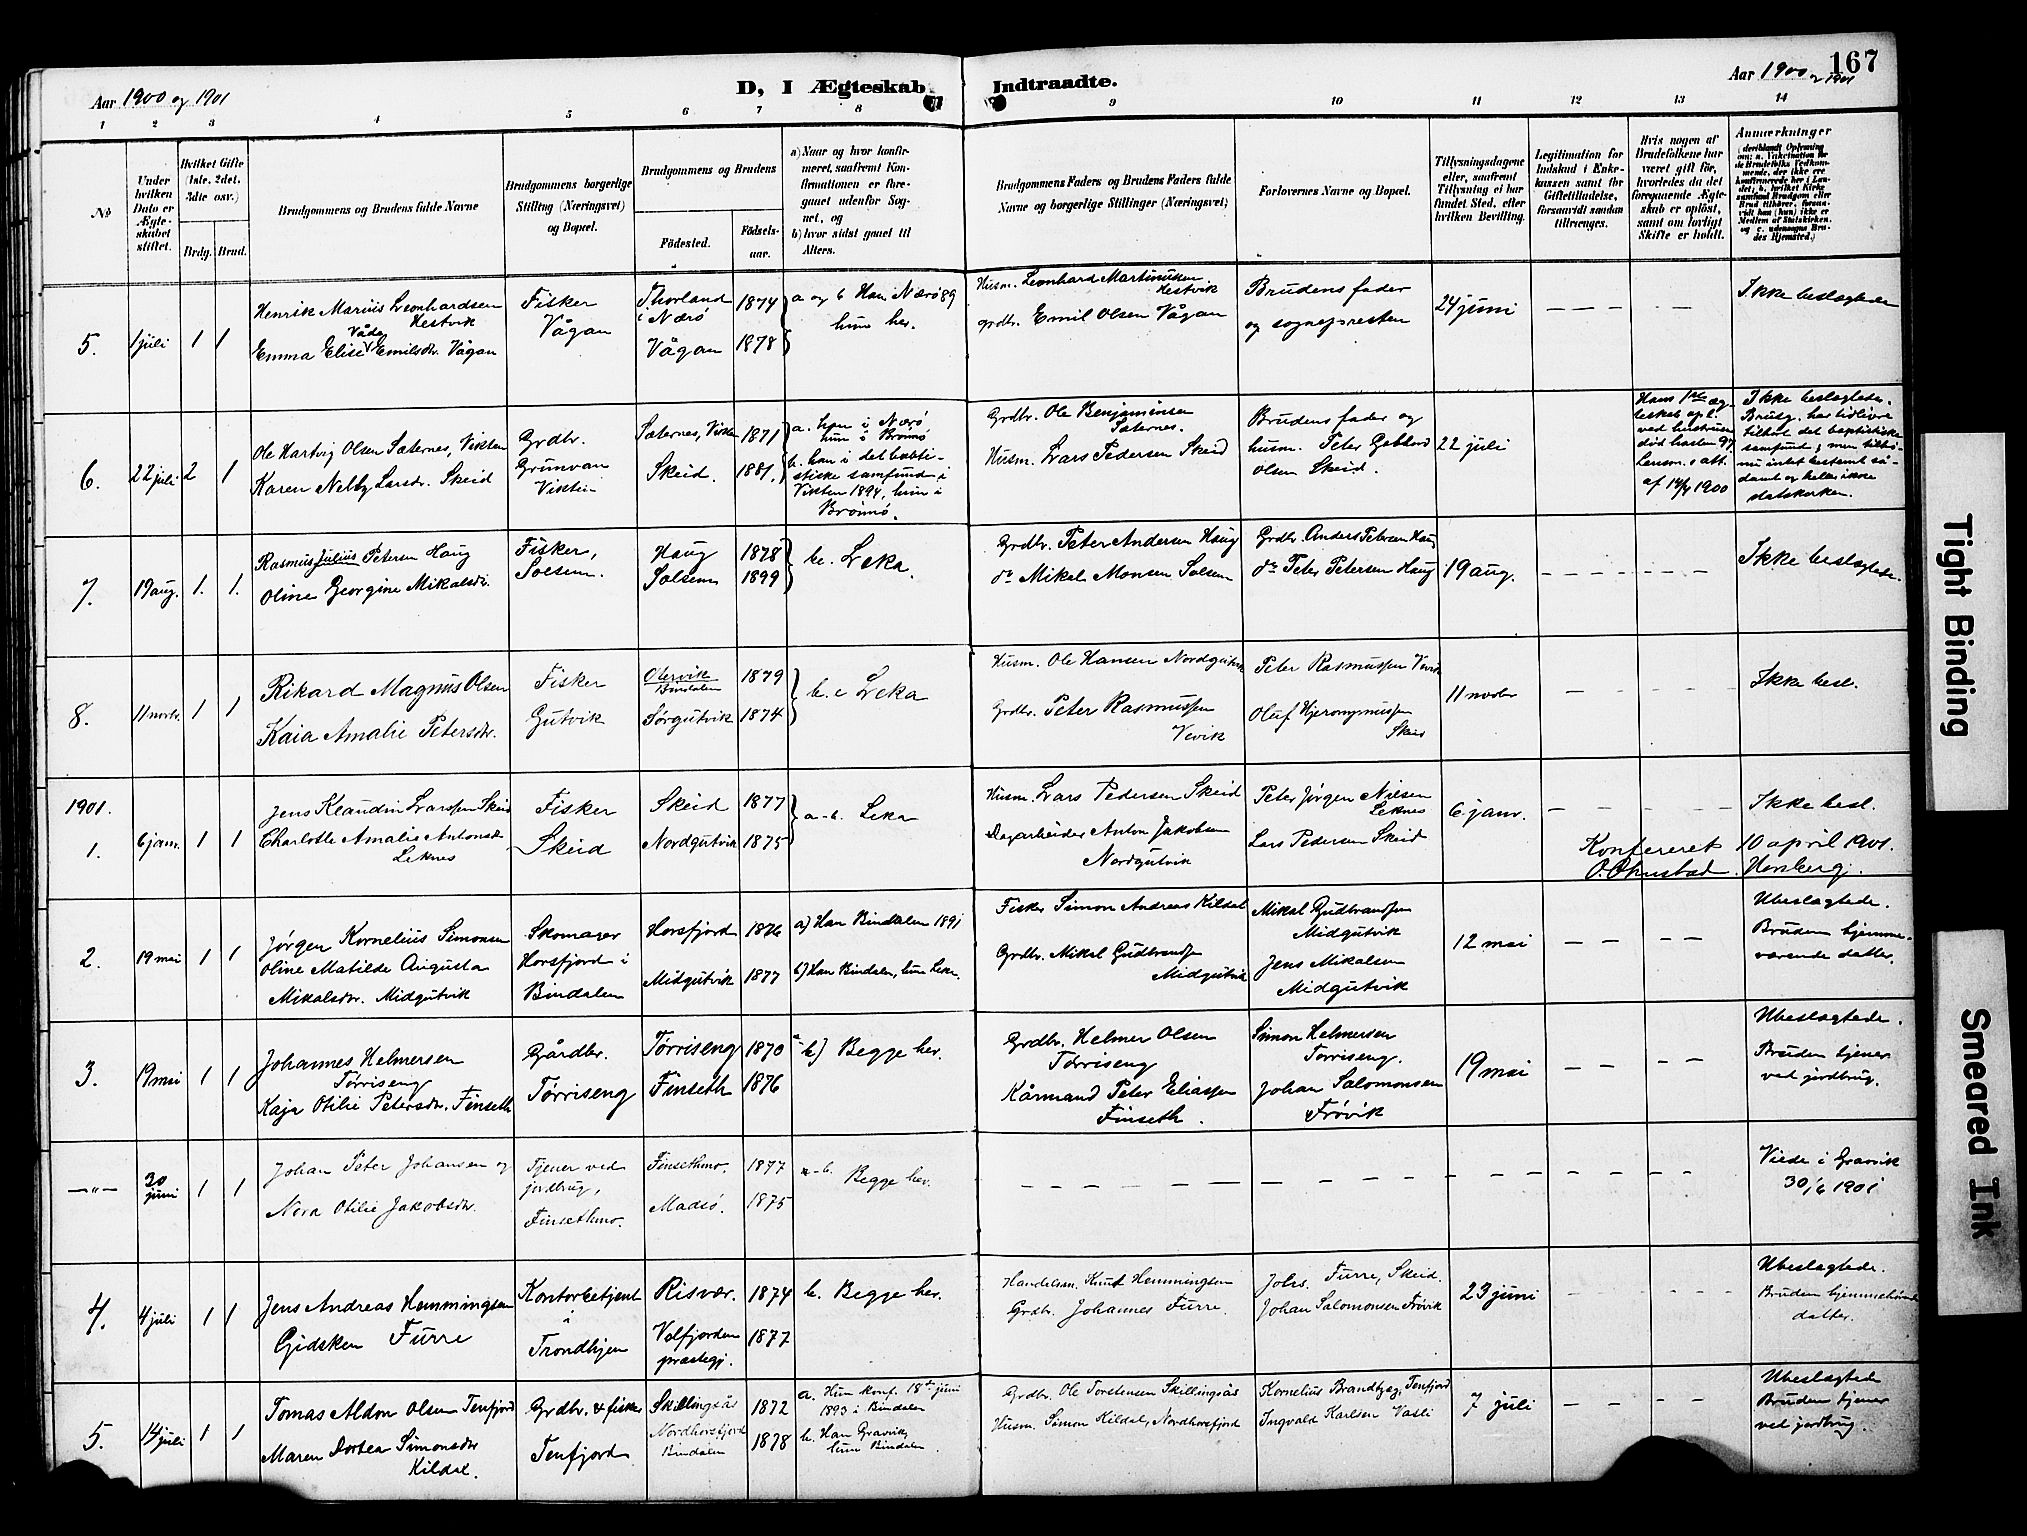 Aar 1900 og 1901
D, I Ægteskab
Indtraadte.
Aar 1900 og 1901
167
1 2 3 4 5 6 7 8 9 10 11 12 13 14
No
Under
hvilken
Dato er
Ægte-
skabet
stiftet.
Hvilket Gifte
(1ste, 2det,
3die osv.)
Brdg. Brud.
Brudgommens og Brudens fulde Navne
Brudgommens borgerlige
Stilling (Næringsvei)
og Bopæl.
Brudgommens og Brudens
Fødested.
Fødsels-
aar.
a) Naar og hvor konfir-
meret, saafremt Kon-
firmationen er fore-
gaaet udenfor Sog-
net, og
b) hvor sidst gaaet til
Alters.
Brudgommens Faders og Brudens Faders fulde
Navne og borgerlige Stillinger (Næringsvei)
Forlovernes Navne og Bopæl.
Tillysningsdagene
eller, saafremt
Tillysning ei har
fundet Sted, efter
hvilken Bevilling.
Legitimation for
Indskud i Enke-
kassen samt for
Giftetilladelse,
forsaavidt saadan
tiltrænges.
Hvis nogen af
Brudefolkene har
været gift før,
hvorledes da det
foregaaende Ægte-
skab er opløst,
samt om lovligt
Skifte er holdt.
Anmærkninger
(deriblandt Oplysning
om: a. Vakcination for
de Brudefolks Vedkom-
mende, der ikke ere
konfirmerede her i Lan-
det; b. hvilket Kirke
samfund Brudgom eller
Brud tilhører, forsaa-
vidt han (hun) ikke er
Medlem af Statskirken.
og c. udensogns Bru-
des Hjemsted.)
5. 1 juli 1 1
Henrik Marius Leonhardsen
Hestvik
Våde
Emma Elise Emilsdr. Vågan
Fisker
Vågan
Thorland
i Nærø
1874
Vågan 1878
a og b Han Nærø 89
hun her.
Husm. Leonhard Martinussen
Hestvik
grdbr. Emil Olsen Vågan
Brudens fader
og sognepresten
24 juni
Ikke beslægtede
6. 22 juli 2 1
Ole Hartvig Olsen Sæternes, Vikten
Karen Nelly Larsdr. Skeid
Grdbr.
Grunvan
Vikten
Sæternes, Vikten 1871
Skeid. 1881.
a. han i Nærø
hun i Brønnø
b. han i det babti-
stiske samfund i
Vikten 1894, hun i
Brønnø.
Grdbr. Ole Benjaminsen
Sæternes.
Husm. Lars Pedersen Skeid
Brudens fader og
husm. Peter Gabbard
Olsen Skeid.
22 juli
Hans 1ste æg-
teskab opl.
ved hustruens
død høsten 97
Lensm.s att.
af 14/4 1900
Ikke beslægtede.
Brudg. har tidligre
tilhørt det baptistiske
samfund; men tilhø-
nu intet bestemt så-
dant og heller ikke
statskirken.
7. 19 aug. 1. 1.
Rasmus Julius Petersen Haug
Oline Georgine Mikalsdr.
Fisker,
Solsem.
Haug 1878
Solsem 1899
b. Leka.
Grdbr. Peter Andersen Haug
do Mikal Monsen Solsem
Grdbr. Anders Petersen Haug
do Peter Petersen Haug
19 aug.
Ikke beslægtede.
8. 11 novbr. 1 1
Rikard Magnus Olsen
Kaia Amalie Petersdr.
Fisker
Gutvik
Otervik
Bindalen
1879
Sørgutvik 1874
b. i Leka
Husm. Ole Hansen Nordgutvik
Grdbr. Peter Rasmussen
Vevik
Peter Rasmussen Vevik
Oluf Hjeronymussen
Skeid
11 novbr
Ikke besl.
1901.
1. 6 janv. 1 1
Jens Klaudin Larssen Skeid
Charlotte Amalie Antonsdr.
Leknes
Fisker
Skeid
Skeid 1877
Nordgutvik 1875
a-b. Leka
Husm. Lars Pedersen Skeid
Dagarbeider Anton Jakobsen
Nordgutvik
Peter Jørgen Nielsen
Leknes
Lars Pedersen Skeid
6 janv.
Ikke besl.
Konfereret 10 april 1901.
2. 19 mai 1 1
Jørgen Kornelius Simonsen
Oline Matilde Augusta
Mikalsdr. Midgutvik
Skomager
Horsfjord i
Bindalen
Horsfjord 1876
Midgutvik 1877
a) Han Bindalen 1891
b) Han Bindalen, hun Leka.
Fisker Simon Andreas Kildal
Grdbr. Mikal Gudbransen
Midgutvik
Mikal Gudbransen
Midgutvik
Jens Mikalsen
Midgutvik
12 mai
Ubeslægtede.
Bruden hjemme-
værende datter.
3. 19 mai 1 1
Johannes Helmersen
Tørriseng
Kaja Otilie Petersdr. Finseth
Gårdbr.
Tørriseng
Tørriseng 1870
Finseth 1876
a-b) Begge her.
Grdbr. Helmer Olsen
Tørriseng
Kårmand Peter Eliassen
Finseth.
Simon Helmersen
Tørriseng.
Johan Salomonsen
Frøvik
19 mai
Ubeslægtede.
Bruden tjener
ved jordbrug.
—"— 30
juni
1 1
Johan Peter Johansen og
Nora Otilie Jakobsdr.
Tjener ved
jordbrug,
Finsethmo.
Finsethmo. 1877
Madsø. 1875
a-b. Begge her.
Viede i Gravik
30/6 1901
4. 4 juli 1 1
Jens Andreas Hemmingsen
Gidsken Furre
Kontorbetjent
i
Trondhjem
Risvær. 1874
Velfjorden
præstegj.
1877
b. Begge her.
Handelsm. Knut Hemmingsen
Grdbr. Johannes Furre.
Johs. Furre, Skeid.
Johan Salomonsen Frøvik
23 juni
Ubeslægtede.
Bruden hjemmehørende
datter.
5. 14 juli 1 1
Tomas Aldon Olsen Tenfjord
Maren Dortea Simonsdr
Kildal.
Grdbr. & fisker
Tenfjord
Skillingsås 1872
Nordhorsfjord
Bindalen
1878
a. Hun konf. 18de juni
1893 i Bindalen
b. Han Gravik,
hun Bindalen.
Grdbr. Ole Torstensen Skillingsås
Husm. Simon Kildal, Nordhorsfjord
Kornelius Brandtzæg, Tenfjord
Ingvald Karlsen Vasli
7 juli
Ubeslægtede
Bruden tjener
ved jordbrug.
Tight Binding
Smeared Ink